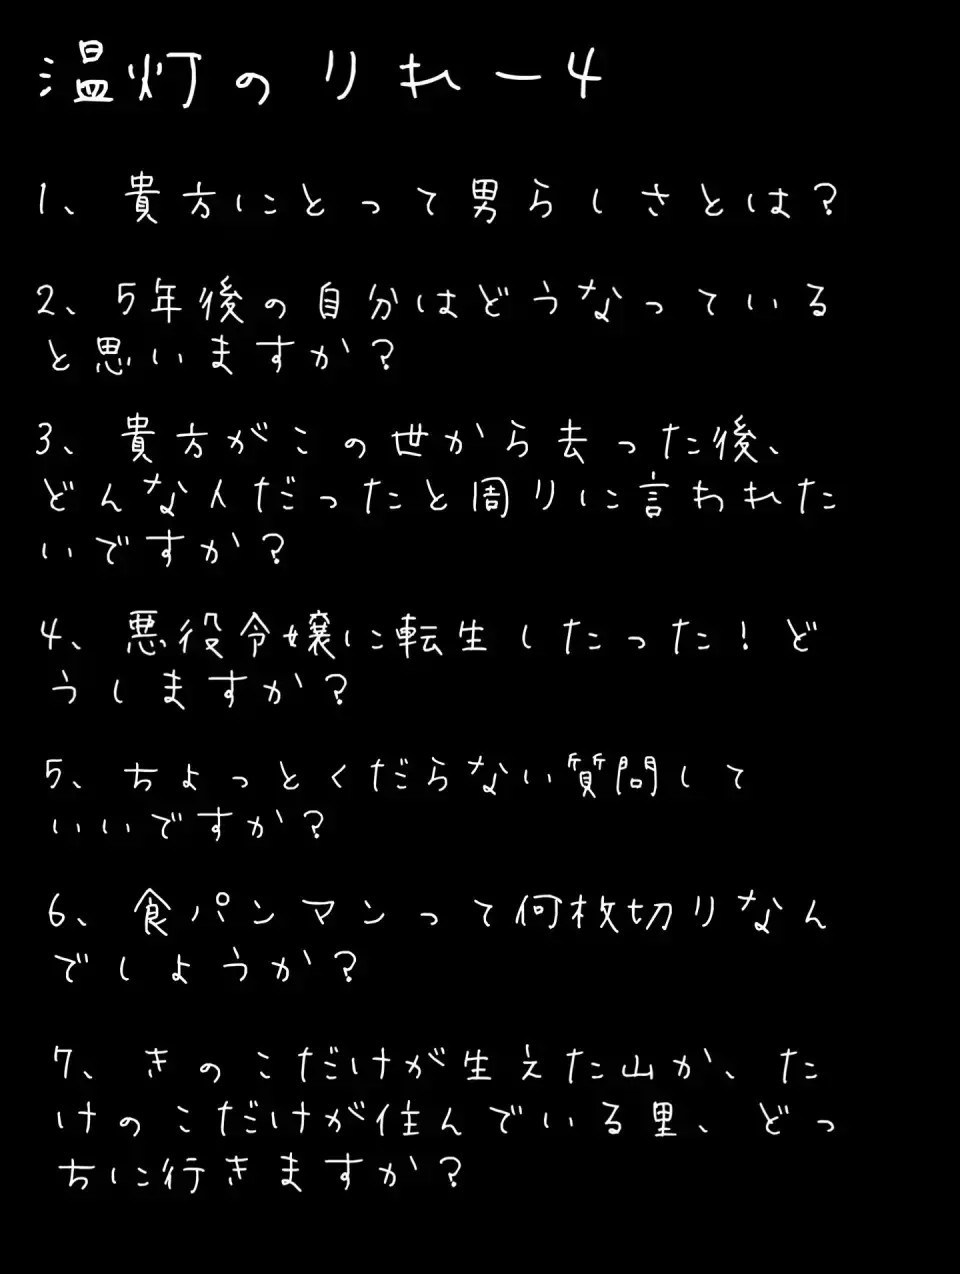 温灯のりれー4
1、貴方にとって男らしさとは?
2、5年後の自分はどうなっている
と思いますか?
3、貴方がこの世から去った後、
どんな人だったと周りに言われた
いですか?
4、悪役令嬢に転生したった!ど
うしますか?
5、ちょっとくだらない質問して
いいですか?
6、食パンマンって何枚切りなん
でしょうか?
7、きのこだけが生えた山か、た
けのこだけが住んでいる里、どっ
ちに行きますか?